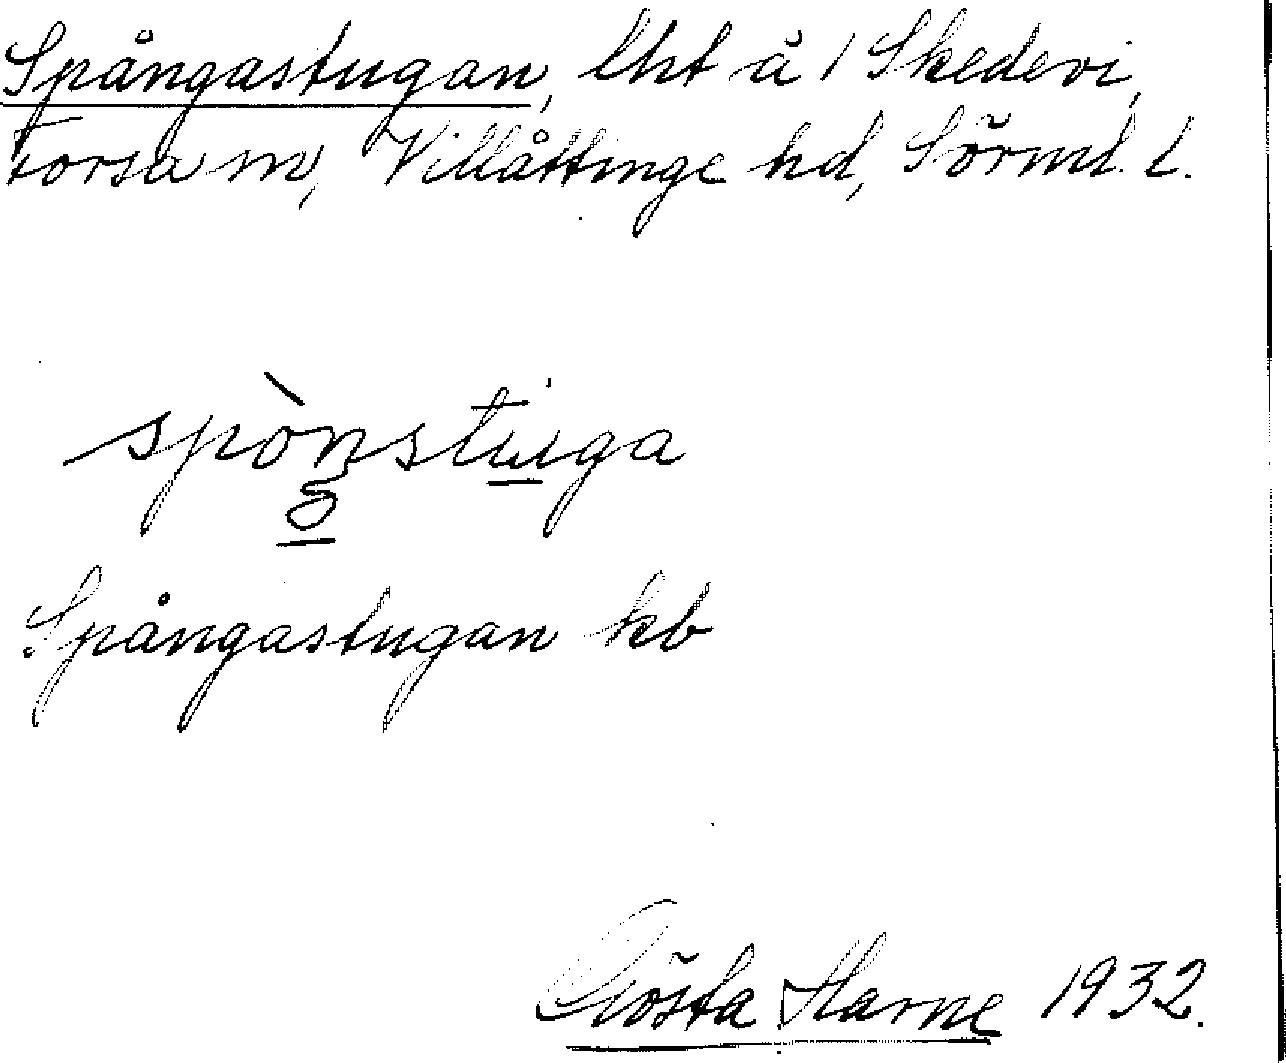 Spångastugan, lht å 1 Skedevi,
Forsa sn, Villåttinge hd, Sörml. l.
spòŋstuga
Spångastugan kb
Gösta Harne 1932.